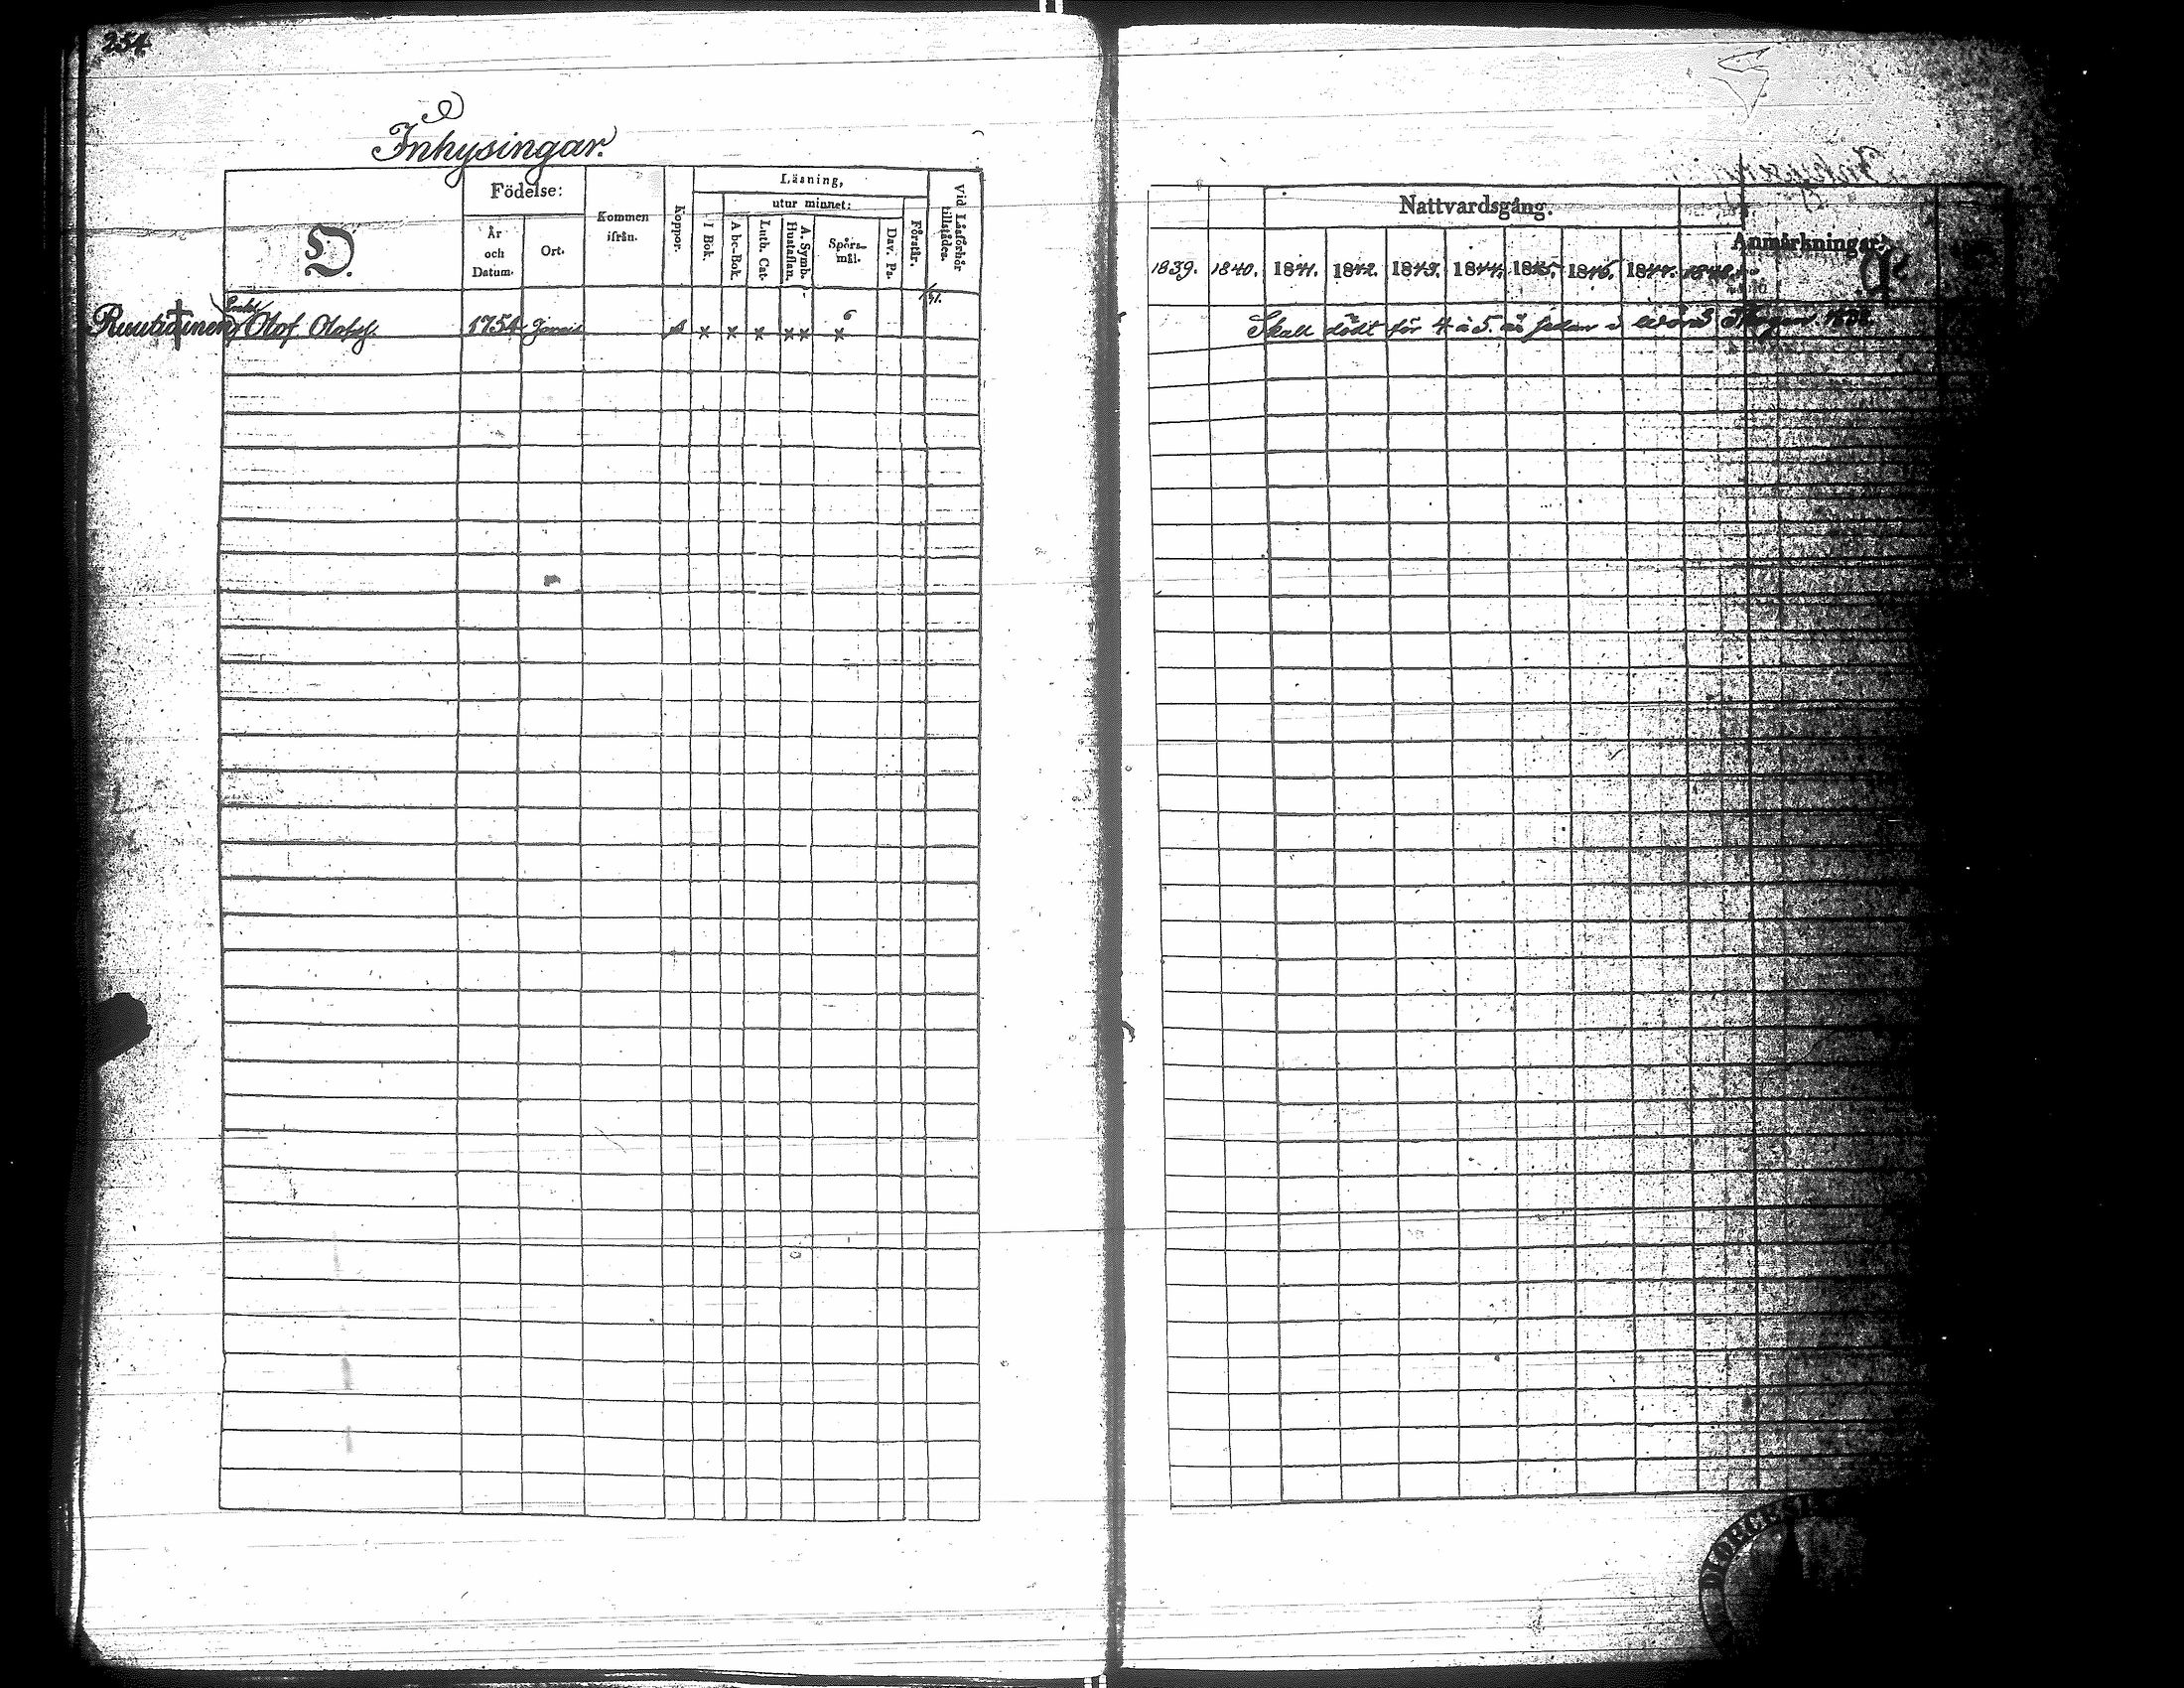 254
Inhysingar.
D.
Födelse:
År och Datum.
Ort.
Kommen ifrån.
Koppor.
Läsning,
I Bok.
utur minnet:
A bc-Bok.
Luth. Cat.
Hustaflan.
A. Symb.
Spörs-mål.
Dav. Ps.
Förstår.
Vid Läsförhör tillstädes.
Enkl. Olof Olofss. 1754
6
1839. 1840.
Nattvardsgång.
1841. 1842. 1843. 1844. 1845. 1846. 1847.
Anmärkningar.
Skall dödt för 4 à 5 år sedan i